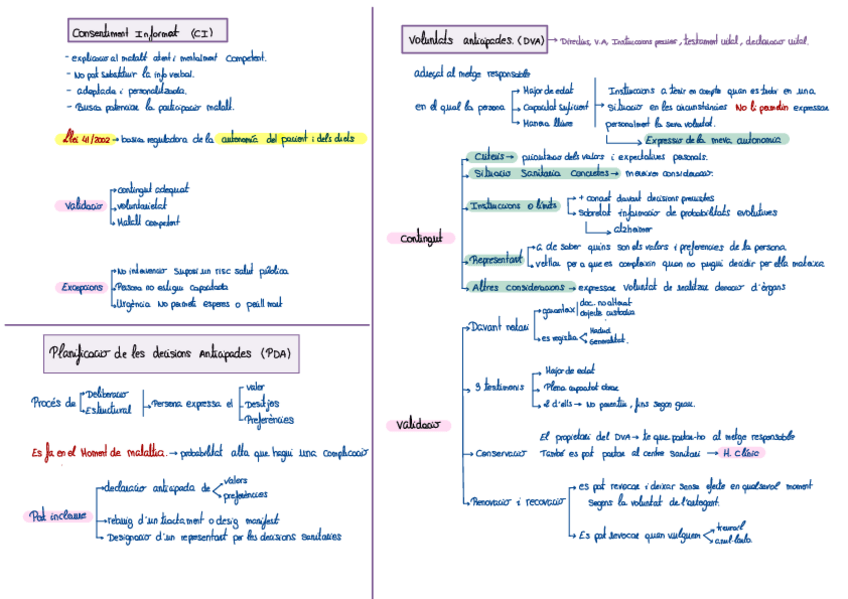 Consentiment Informat (CI)
- explicació al malalt atent i mentalment competent.
- No pot substituir la info verbal.
- adaptada i personalitzada.
- Busca potenciar la participació malalt.
Llei 41/2002 → basica reguladora de la autonomia del pacient i dels drets
Validació
→ contingut adequat
→ voluntarietat
→ Malalt competent
Excepcions
→ No intervenció suposi un risc salut pública
→ Persona no estigui capacitada
→ Urgència No permeti esperes o perill mort
Planificació de les decisions Anticipades (PDA)
Procés de
Deliberació
Estructural
→ Persona expressa el
valor
→ Desitjos
Preferències
Es fa en el Moment de malaltia. → probabilitat alta que hagui una complicació
Pot incloure
→ declaració anticipada de
valors
preferències
→ rebuig d'un tractament o desig manifest
→ Designació d'un representant per les decisions sanitàries
Voluntats anticipades. (DVA) → Directius, V.A, Instruccions prèvies, testament vital, declaració vital.
adreçat al metge responsable
en el qual la persona
→ Major de edat
→ Capacitat suficient
→ Manera lliure
Instruccions a tenir en compte quan es trobi en una
→ Situació en les circumstàncies No li permetin expressar
personalment la seva voluntat.
→ Expressió de la meva autonomia
Contingut
Criteris → priorització dels valors i expectatives personals.
Situació Sanitaria Concretes →
Instruccions o límits
→ + concret davant decisions previstes
→ sobretot informació de probabilitats evolutives
→ alzheimer
Representant
→ a de saber quins son els valors i preferencies de la persona
→ vetlla per a que es compleixin quan no pugui decidir per ella mateixa
Altres consideracions → expressar voluntat de realitzar donació d'òrgans
Validació
→ Davant notari
→ garanteix
doc. no alterat
objecte custodia
→ es registra
Madrid
Generalitat.
→ 3 testimonis
→ Major de edat
→ Plena capacitat obrar
→ 2 d'ells → No parentiu, fins segon grau.
→ Conservació
El propietari del DVA → te que portar-ho al metge responsable
També es pot portar al centre sanitari → H. Clínic
→ Renovació i revocació
→ es pot revocar i deixar sense efecte en qualsevol moment
segons la voluntat de l'atorgant.
→ Es pot revocar quan vulguem